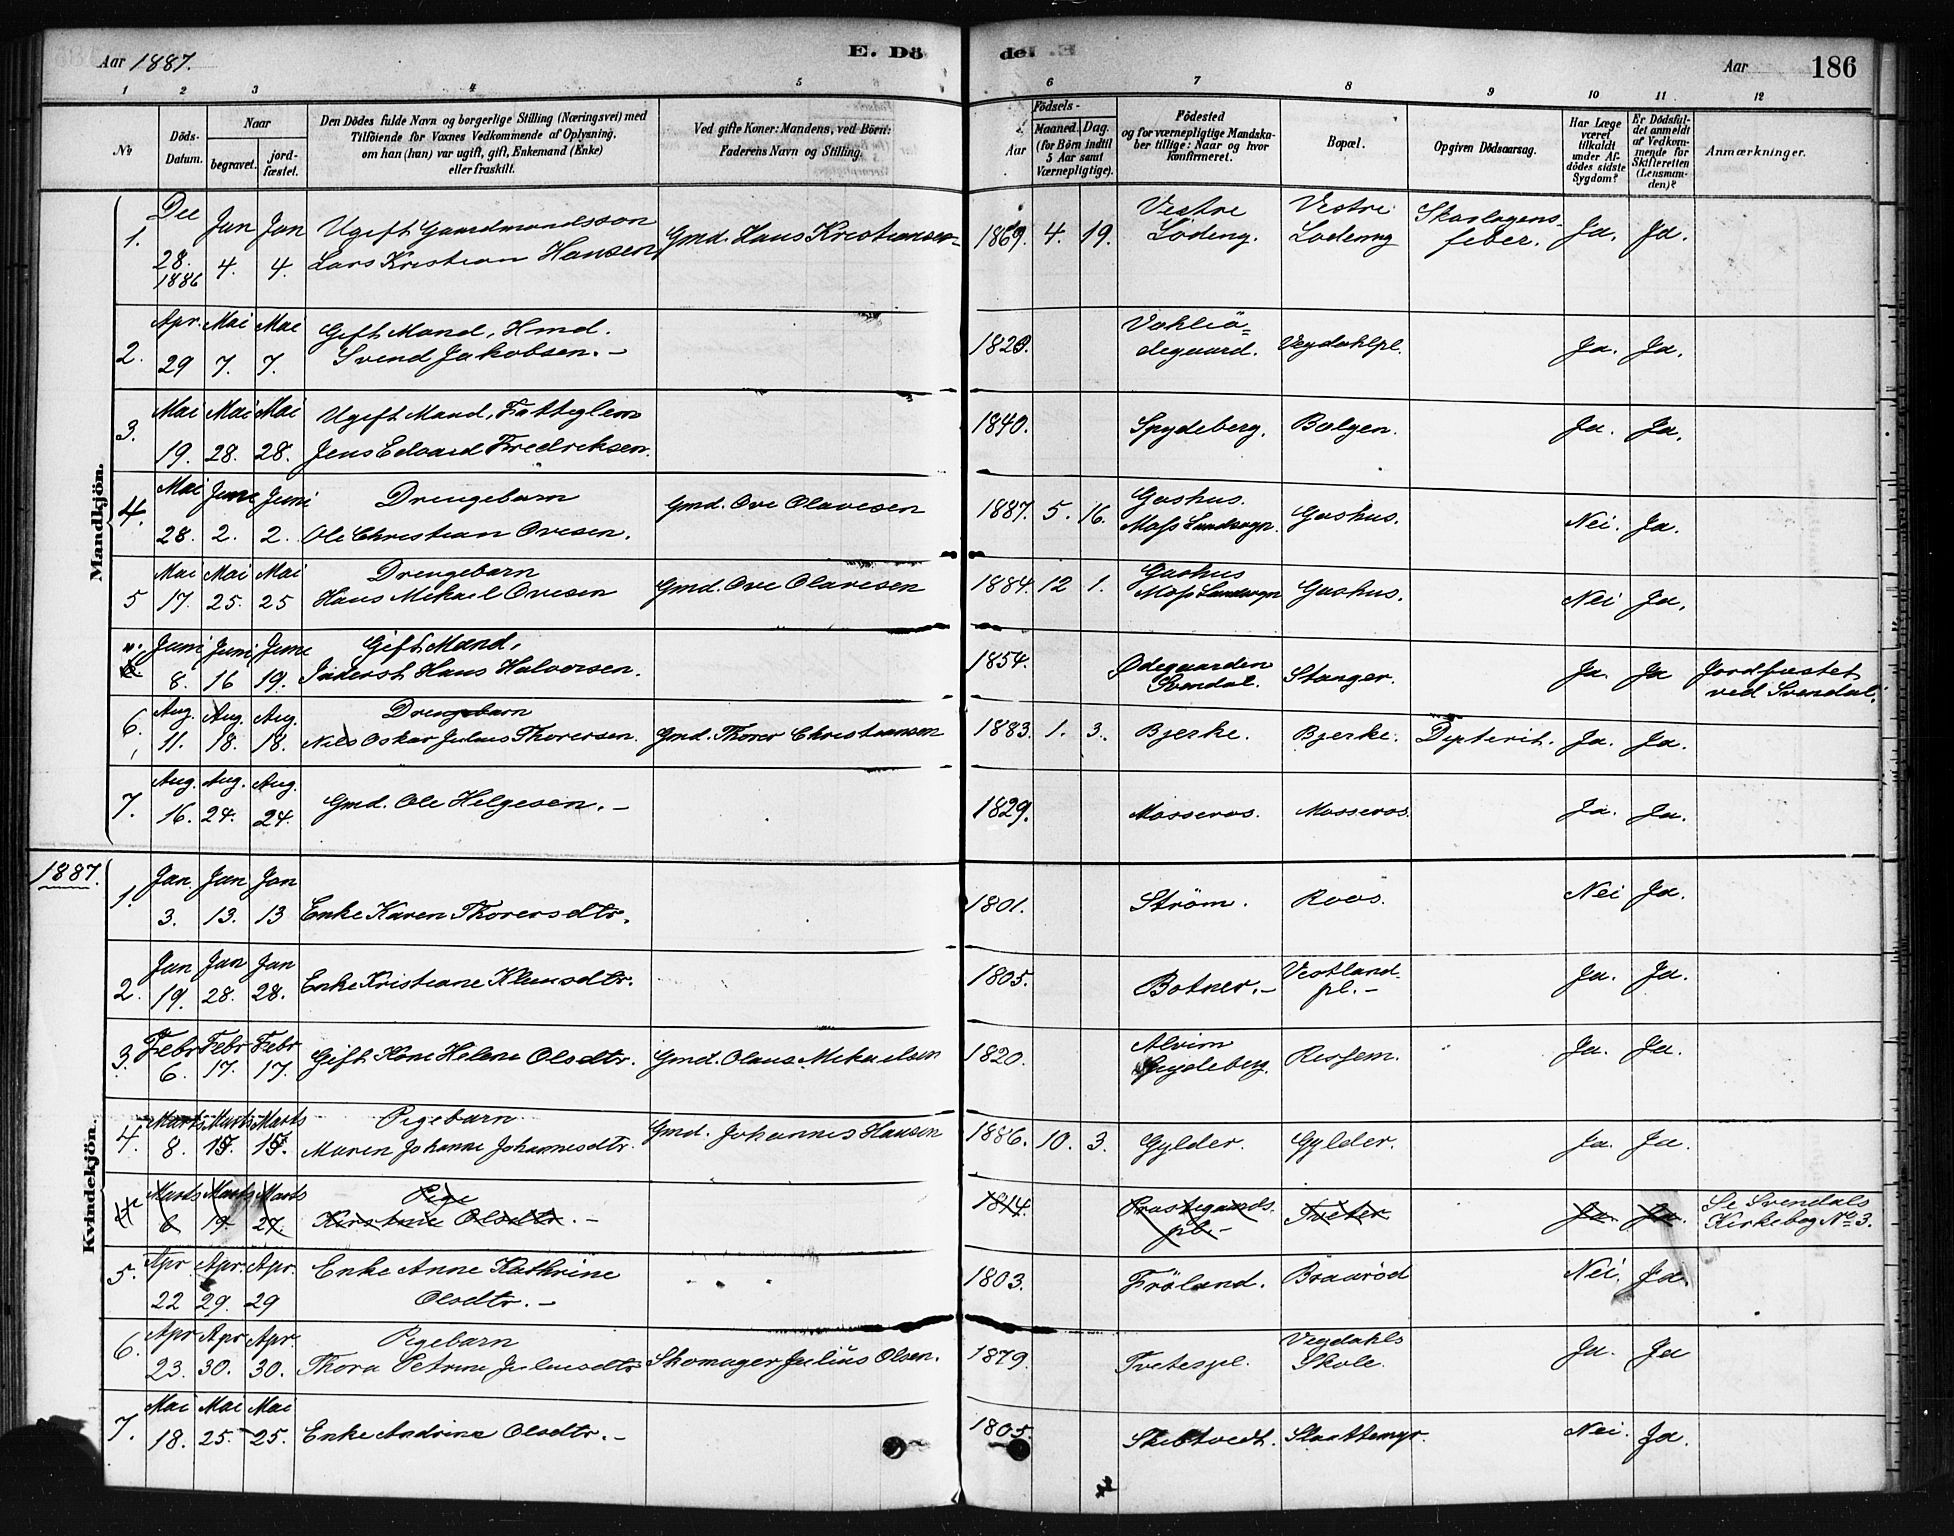 Aar 1887.
E. Dö
del
Aar
186
1 2 3 4 5 6 7 8 9 10 11 12
No
Döds-Datum.
Naar
begravet.
jord-fæstet.
Den Dödes fulde Navn og borgerlige Stilling (Næringsvei) med
Tilföiende for Voxnes Vedkommende af Oplysning,
om han (hun) var ugift, gift, Enkemand (Enke)
eller fraskilt.
Ved gifte Koner: Mandens, ved Börn:
Faderens Navn og Stilling.
Födsels-
Aar
Maaned. Dag.
(for Börn indtil
5 Aar samt
Værnepligtige).
Födested
og for værnepligtige Mandska-
ber tillige: Naar og hvor
konfirmeret.
Bopæl.
Opgiven Dödsaarsag.
Har Læge
været
tilkaldt
under Af-
dödes sidste
Sygdom?
Er Dödsfal-
det anmeldt
af Vedkom-
mende for
Skifteretten
(Lensman-
den)?
Anmærkninger.
Mandkjön.
1. Dec 28. 1886 Jan 4. Jan 4. Ugift Gaardmandssøn
Lars Kristian Hansen Gmd. Hans Kristiansen 1869. 4. 19. Vestre Lödeng. Vestre Lödeng Skarlagens-feber. Ja. Ja.
2. Apr. 29 Mai 7. Mai 7. Gift Mand, Hmd.
Svend Jakobsen. 1820. degaard. Vegdahlpl. Ja. Ja.
3. Mai 19. Mai 28. Mai 28. Ugift Mand, Fattiglem
Jens Edvard Fredriksen. 1840. Spydeberg. Bølgen. Ja. Ja.
4. Mai 28. Juni 2. Juni 2. Drengebarn
Ole Christian Ovesen. Gmd. Ove Olavesen 1887. 5. 16. Gashus. Moss Landsogn. Gashus. Nei. Ja.
5 Mai 17. Mai 25. Mai 25 Drengebarn
Hans Mikael Ovesen Gmd. Ove Olavesen 1884. 12 1. Gashus Moss Landsogn Gashus. Nei Ja.
Juni 8. Juni 16 Juni 19. Gift Mand,
Inderst Hans Halvorsen. 1854. Ødegaarden Svendal. Stanger. Ja. Ja Jordfæstet
ved Svendal.
6. Aug. 11. Aug. 18. Aug. 18. Drengebarn
Nils Oskar Julius Thorersen. Gmd. Thorer Christiansen 1883. 1. 3. Bjerke. Bjerke. Dipterit. Ja. Ja.
7. Aug. 16. Aug. 24. Aug. 24. Gmd. Ole Helgesen. 1829. Mosseros. Mosseros. Ja. Ja.
1887.
Kvindekjön.
1. Jan. 3. Jan 13. Jan 13 Enke Karen Thorersdtr. 1801. Ström. Roos. Nei Ja.
2. Jan 19. Jan 28. Jan 28. Enke Kristiane Klausdtr. 1805. Botner. Vestland pl. Ja. Ja.
3. Febr 6. Febr 17. Febr 17. Gift Kone Helene Olsdtr. Gmd. Olaus Mikaelsen 1820. Alvim Spydeberg. Rissem. Ja. Ja.
4. Marts 8. Marts 15. Marts 15. Pigebarn
Maren Johanne Johannesdtr. Gmd. Johannes Hansen 1886. 10. 3. Gylder. Gylder. Ja. Ja.
Marts 6 Marts 19. Marts 27. Pige
Kirstine Olsdtr. 1814. Præstegaards pl. Tveter Ja. Ja. Se Svendals
Kirkebog No 3.
5. Apr 22 Apr. 29. Apr. 29 Enke Anne Kathrine
Olsdtr. 1803. Fröland. Braaröd Nei. Ja
6. Apr 23. Apr 30. Apr. 30. Pigebarn
Thora Petrine Juliusdtr Skomager Julius Olsen. 1879. Tvetespl. Vegdahls Skole. Ja. Ja
7. Mai 18. Mai 25. Mai 25. Enke Andrine Olsdtr. 1805. Skibtvedt. Slaattemyr. Nei. Ja.